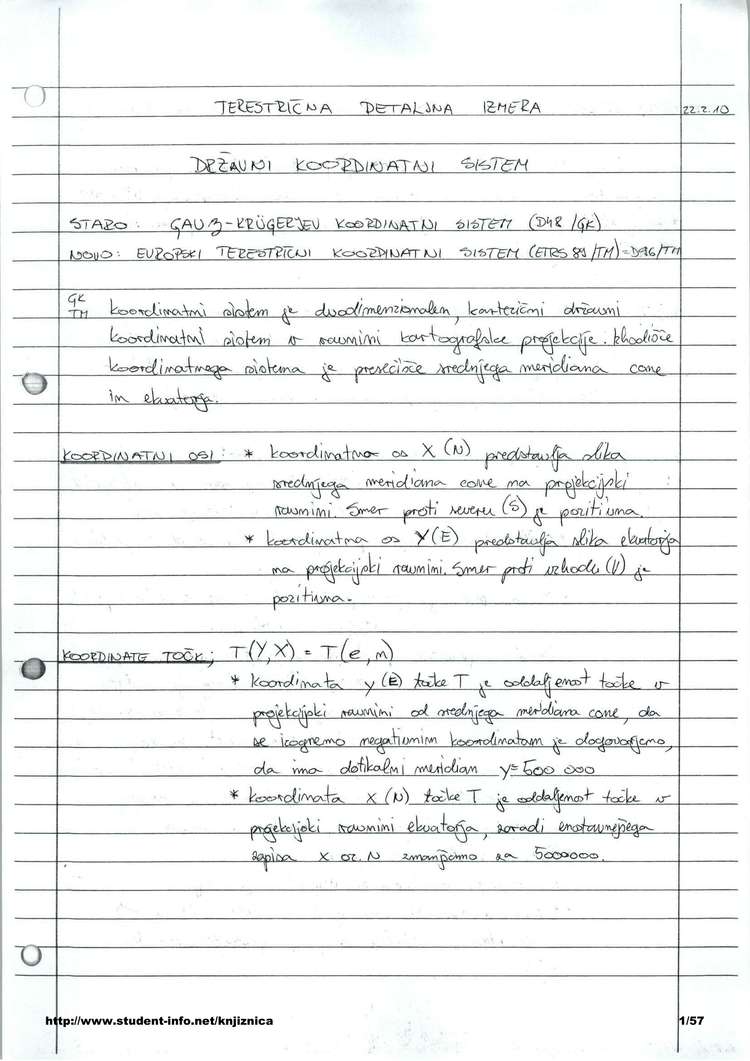 TERESTRIČNA DETAJLNA IZMERA 22.2.10
DRŽAVNI KOORDINATNI SISTEM
STARO: GAUß-KRÜGERJEV KOORDINATNI SISTEM (D48/GK)
NOVO: EVROPSKI TERESTRIČNI KOORDINATNI SISTEM (ETRS 89/TM)=D96/TM
GK
TM koordinatni sistem je dvodimenzionalen, kartezični državni
koordinatni sistem v ravnini kartografske projekcije. Izhodišče
koordinatnega sistema je presečišče srednjega meridiana cone
in ekvatorja.
KOORDINATNI OSI: * koordinatna os X (N) predstavlja slika
srednjega meridiana cone na projekcijski
ravnini. Smer proti severu (S) je pozitivna.
* koordinatna os Y(E) predstavlja slika ekvatorja
na projekcijski ravnini. Smer proti vzhodu (V) je
pozitivna.
KOORDINATE TOČK; T(Y,X) = T(e,n)
* koordinata y (E) točke T je oddaljenost točke v
projekcijski ravnini od srednjega meridiana cone, da
se izognemo negativnim koordinatam je dogovorjeno,
da ima dotikalni meridian y=500 000
* koordinata X (N) točke T je oddaljenost točke v
projekcijski ravnini ekvatorja, zaradi enostavnejšega
zapisa X oz. N zmanjšamo za 5000000.
http://www.student-info.net/knjiznica 1/57